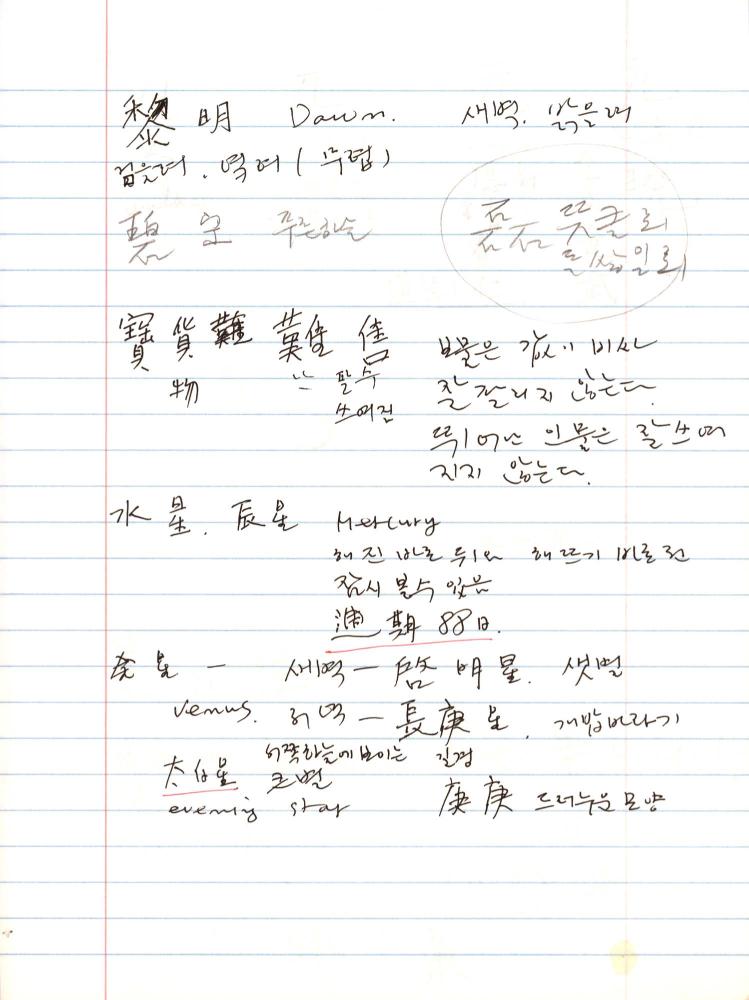 黎 明 Dawn. 새벽. 밝을려
검을려. 역려 (무렵)
碧 空 푸른하늘
磊 뜻클뢰
돌쌓일뢰
寶 貨 難 難 售
物 난 팔수
쓰여짐
보물은 값이 비싸
잘 팔리지 않는다.
뛰어난 인물은 잘쓰여
지지 않는다.
水 星. 辰星 Mercury
해 진 바로 뒤와 해뜨기 바로전
잠시 볼수 있음
週 期 88日.
金星 — 새벽 — 啓 明 星. 샛별
Venus. 저녁 — 長庚星. 개밥바라기
서쪽하늘에 보이는 길경
太白星 큰별
evening star 庚 庚 드러누운 모양